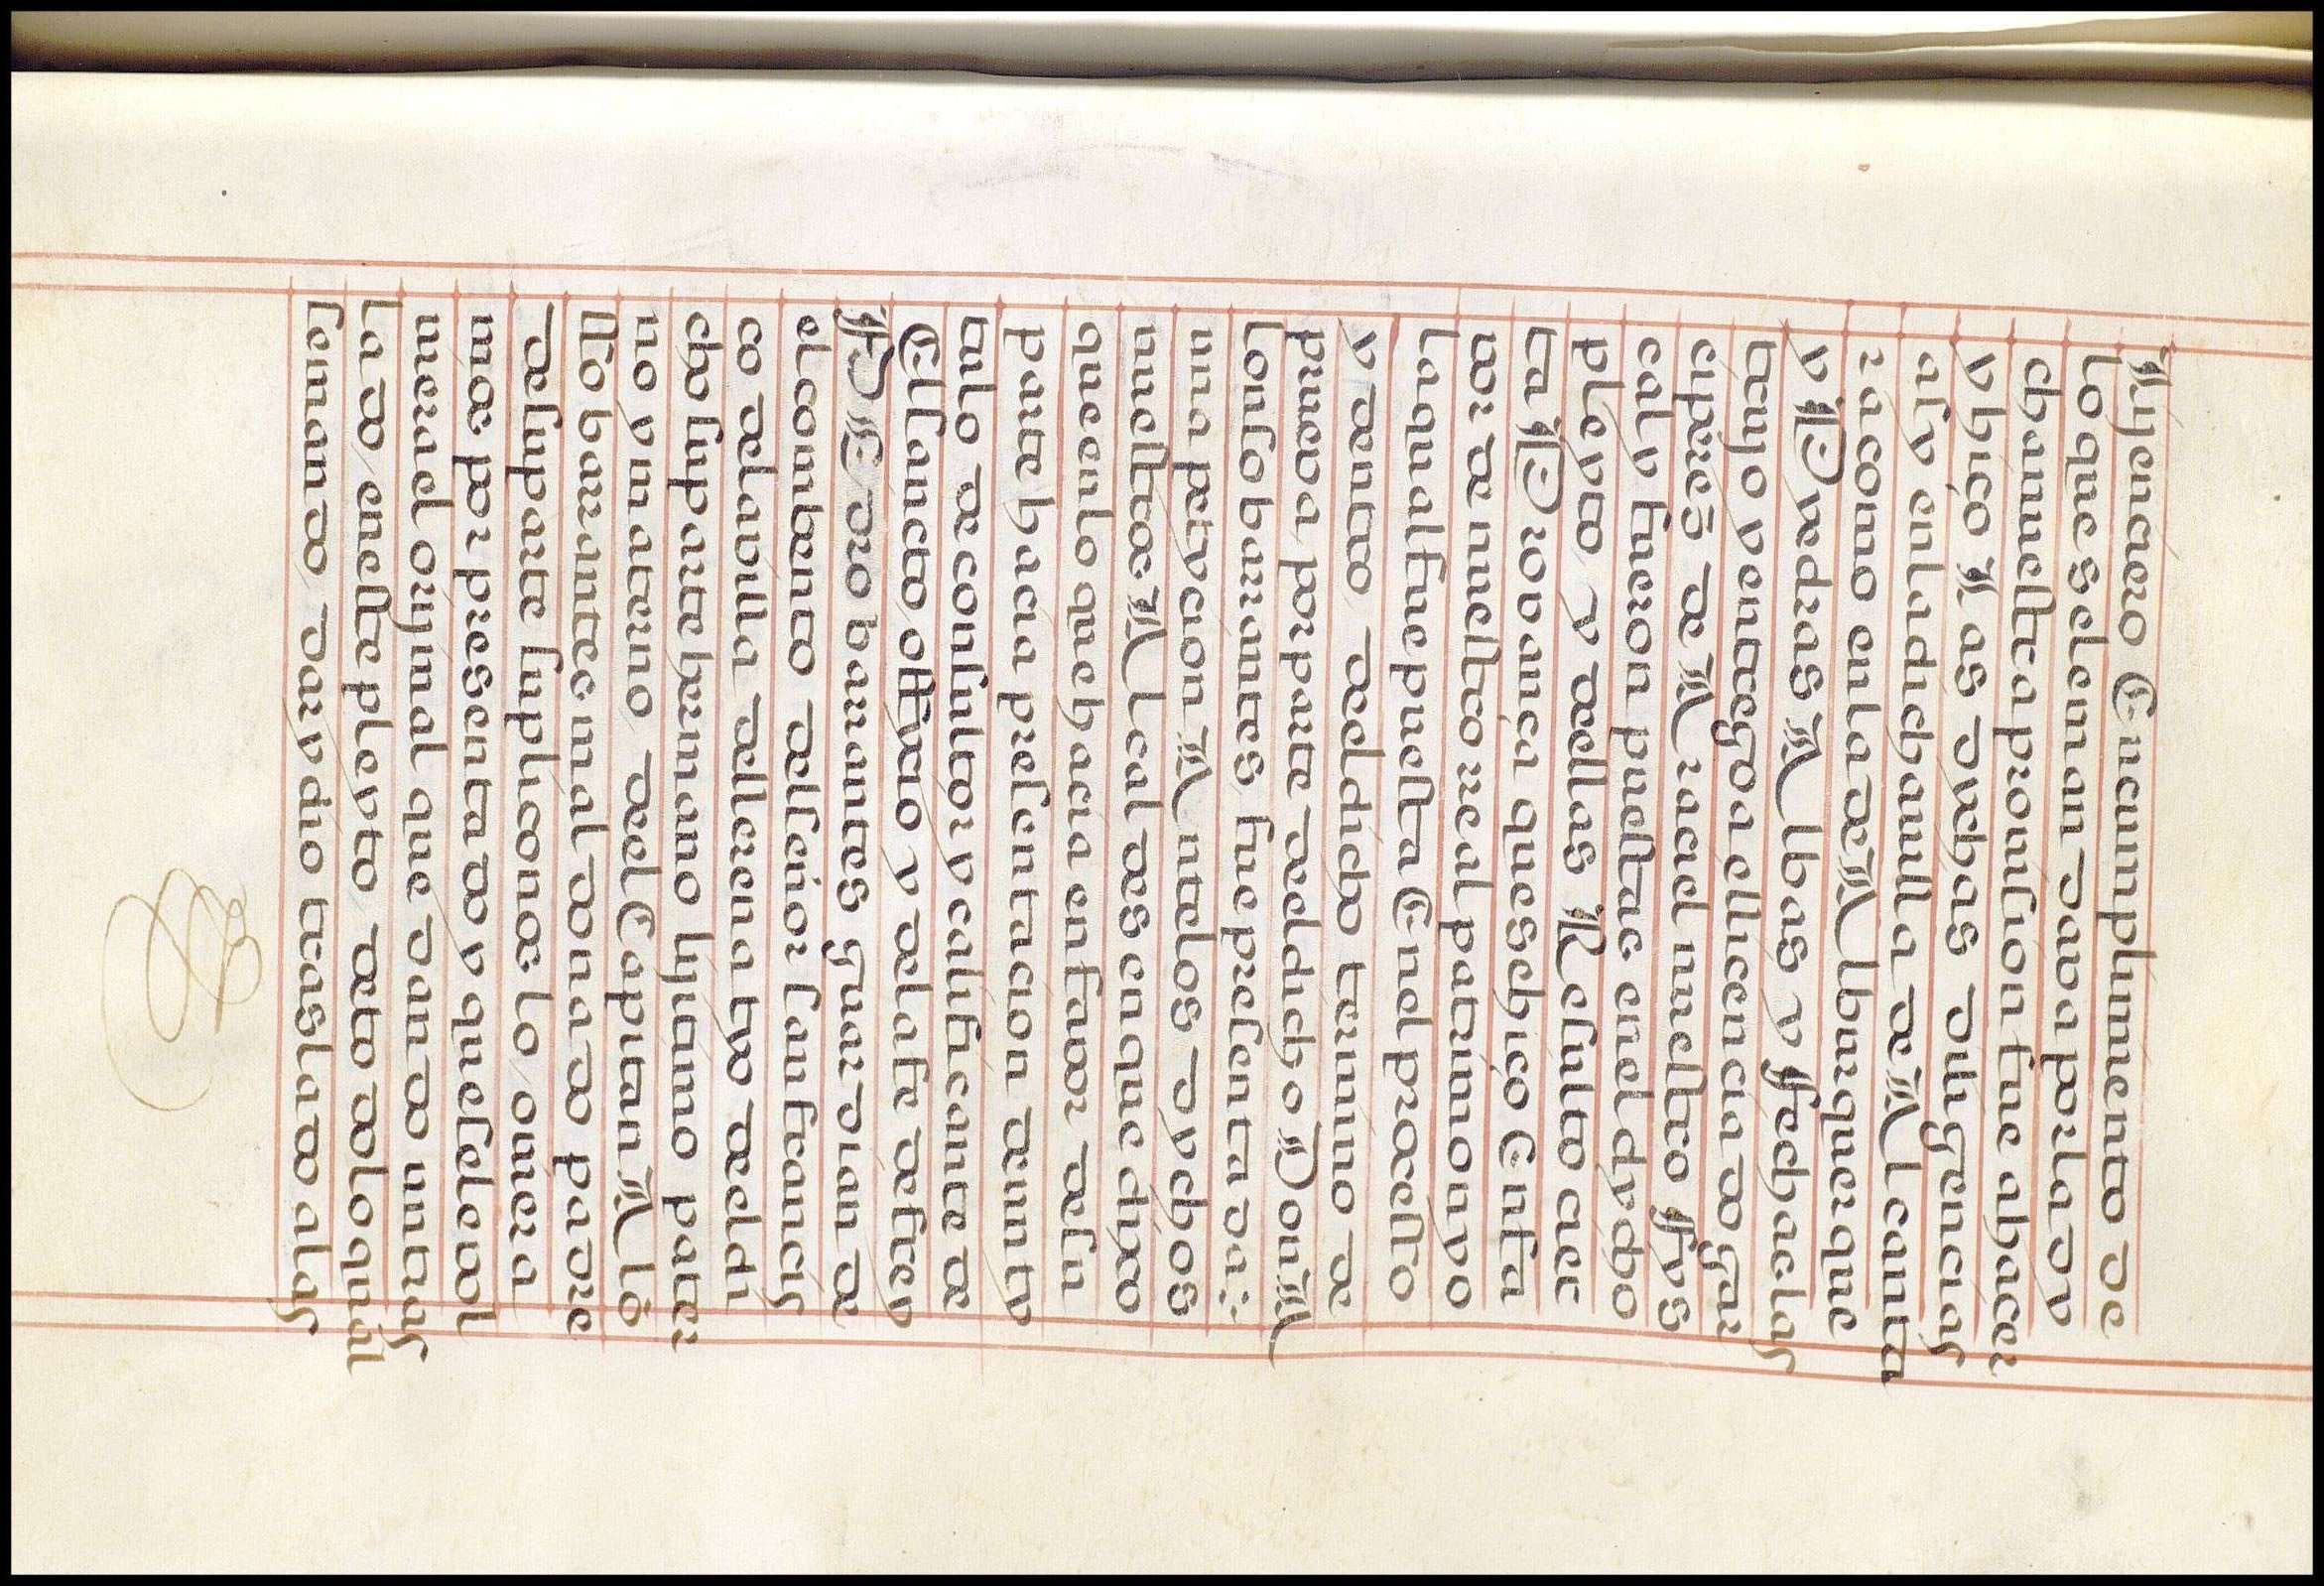 lijençiero En cumplimiento de
lo que se le mandava por la dy
cha nuestra prouision fue a haçer
y hiço las dychas diligençias
asy en la dicha uilla de Alcanta
ra como en la de Alburquerque
y Piedras Albas y ffechaelas
truxo y entregó a el liçençiado gar
ci perez de Araçiel nuestro ffys
cal y fueron puestas en el dycho
pleyto y dellas Resulto çier
ta Provança que se hiço En fa
uor de nuestro real patrimonyo
la qual fue puesta En el proçesso
y dentro del dicho termino de
prueva por parte del dicho Don A
lonso barrantes fue presentada
una petycion Ante los dychos
nuestros Alcaldes en que dixo
que en lo que haçia en fauor de su
parte haçia presentaçion de un ty
tulo de consultor y calificante de
El santo offiçio y de la fe de frey
Pedro barrantes guardian de
el conbento del señor san françis
co de la villa de llerena tyo del di
cho su parte hermano lijitimo pater
no y materno del Capitan Alõ
sso barrantes maldonado padre
de su parte suplicónos lo oviera
mos por presentado y que se le vol
uiera el orijinal que dando un tras
lado en este pleyto de to do lo qual
se mando dar y dio traslado a las